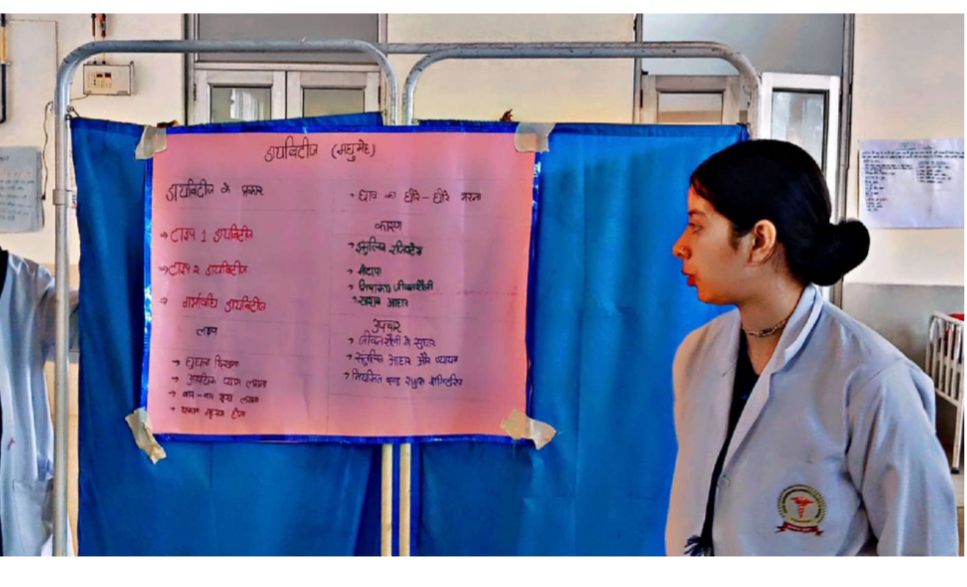 डायबिटीज (मधुमेह)
डायबिटीज के प्रकार
→ टाइप 1 डायबिटीज
→ टाइप 2 डायबिटीज
→ गर्भावधि डायबिटीज
लक्षण
→ धुंधला दिखना
→ अत्यधिक प्यास लगना
→ बार-बार भूख लगना
→ थकान महसूस होना
→ घाव का धीरे-धीरे भरना
कारण
→ इंसुलिन रजिस्टेंस
→ मोटापा
→ जीवनशैली
→ खराब आहार
उपचार
→ जीवनशैली में सुधार
→ संतुलित आहार और व्यायाम
→ नियमित ब्लड शुगर मॉनिटरिंग